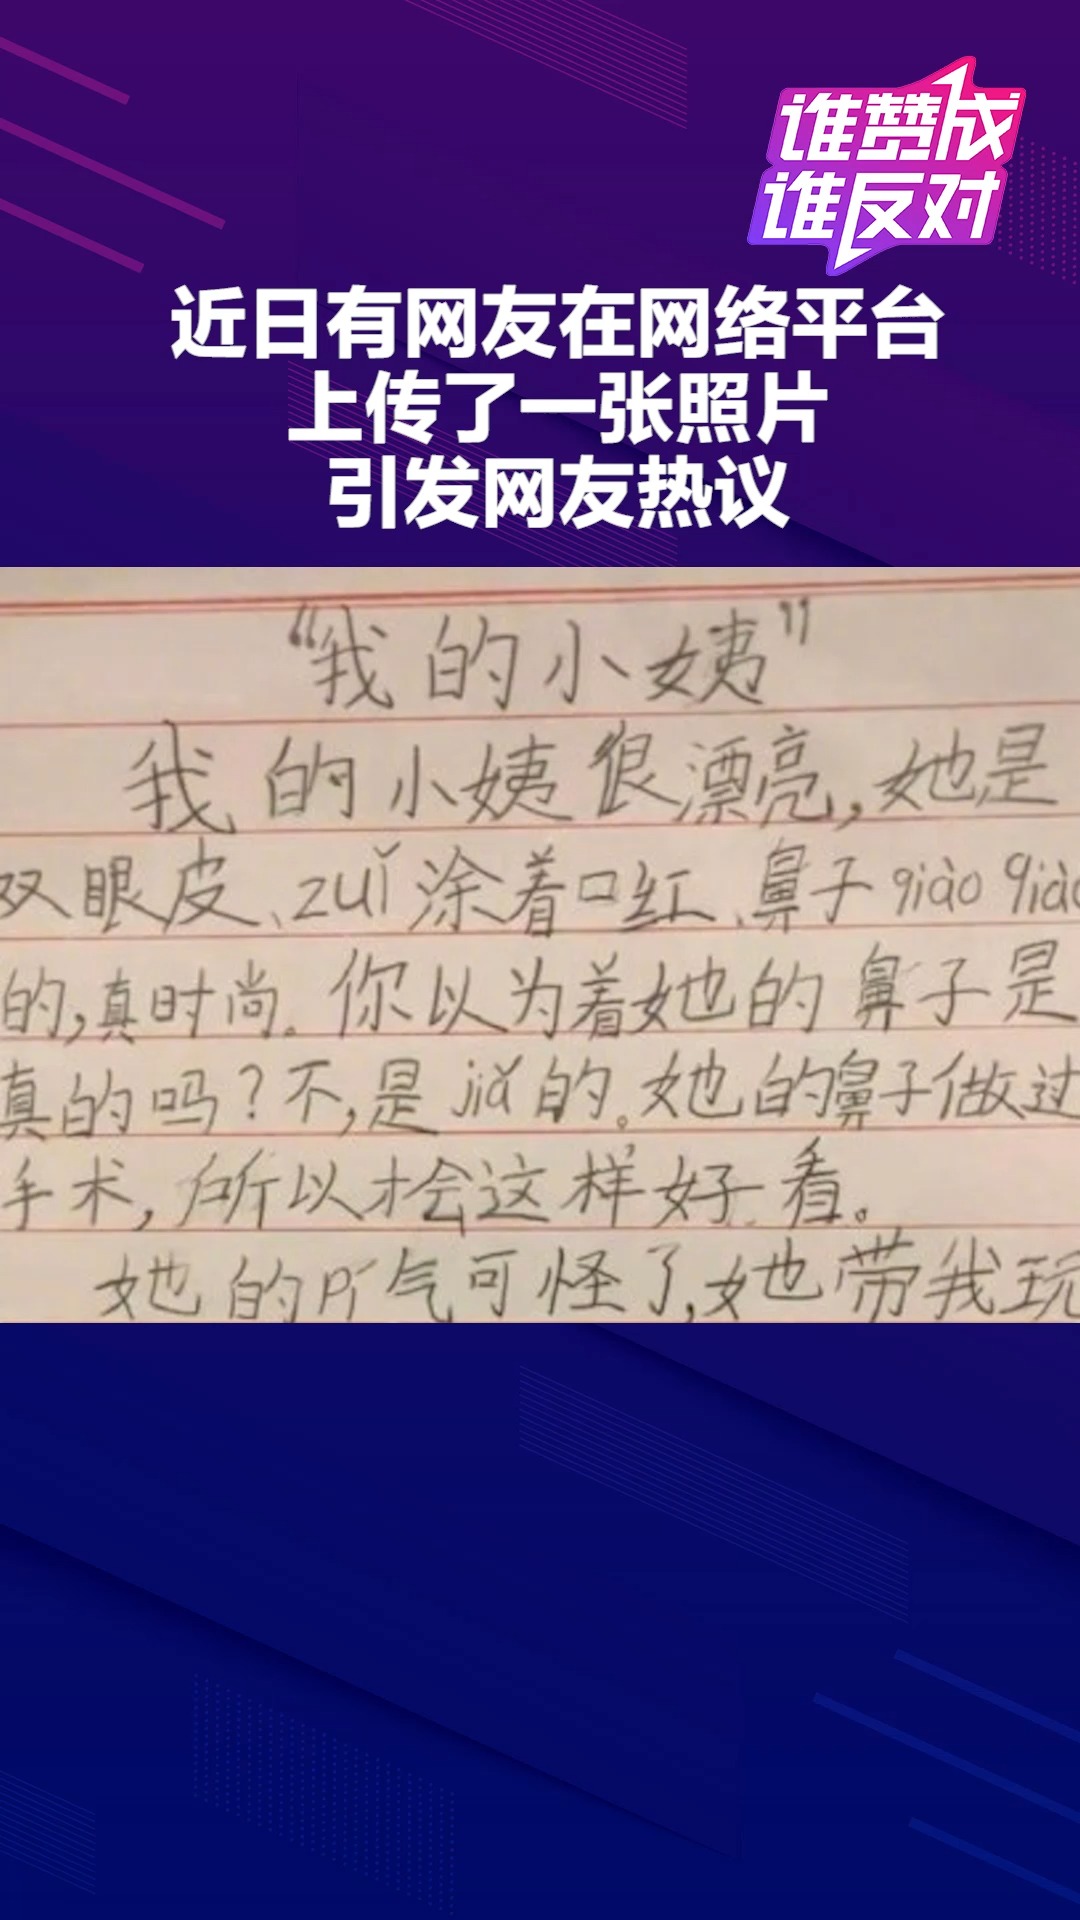 谁赞成
谁反对
近日有网友在网络平台
上传了一张照片
引发网友热议
“我的小姨”
我的小姨很漂亮,她是
双眼皮、zuǐ涂着口红、鼻子qiào qiào
的,真时尚。你以为着她的鼻子是
真的吗?不,是jiǎ的。她的鼻子做过
手术,所以才会这样好看。
她的pí气可怪了,她带我玩